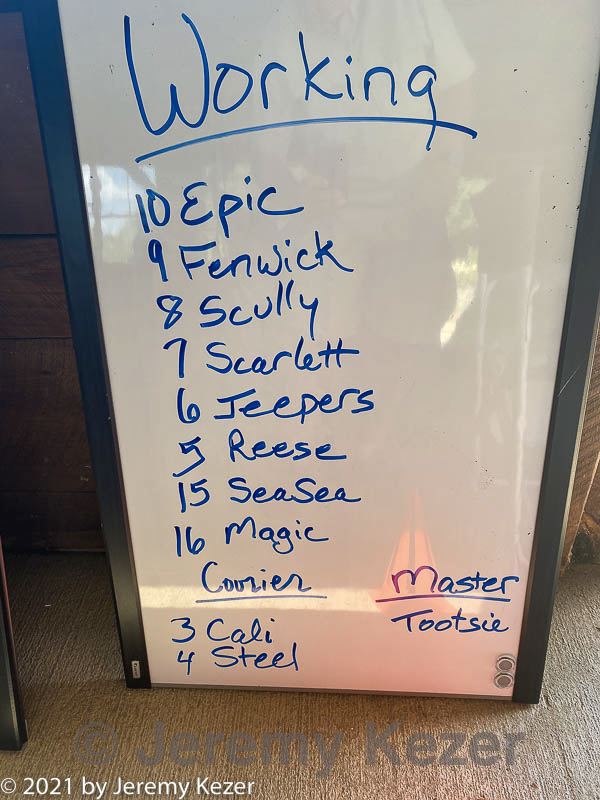 Working
10 Epic
9 Fenwick
8 Scully
7 Scarlett
6 Jeepers
5 Reese
15 SeaSea
16 Magic
Courier Master
3 Cali Tootsie
4 Steel
© Jeremy Kezer
© 2021 by Jeremy Kezer